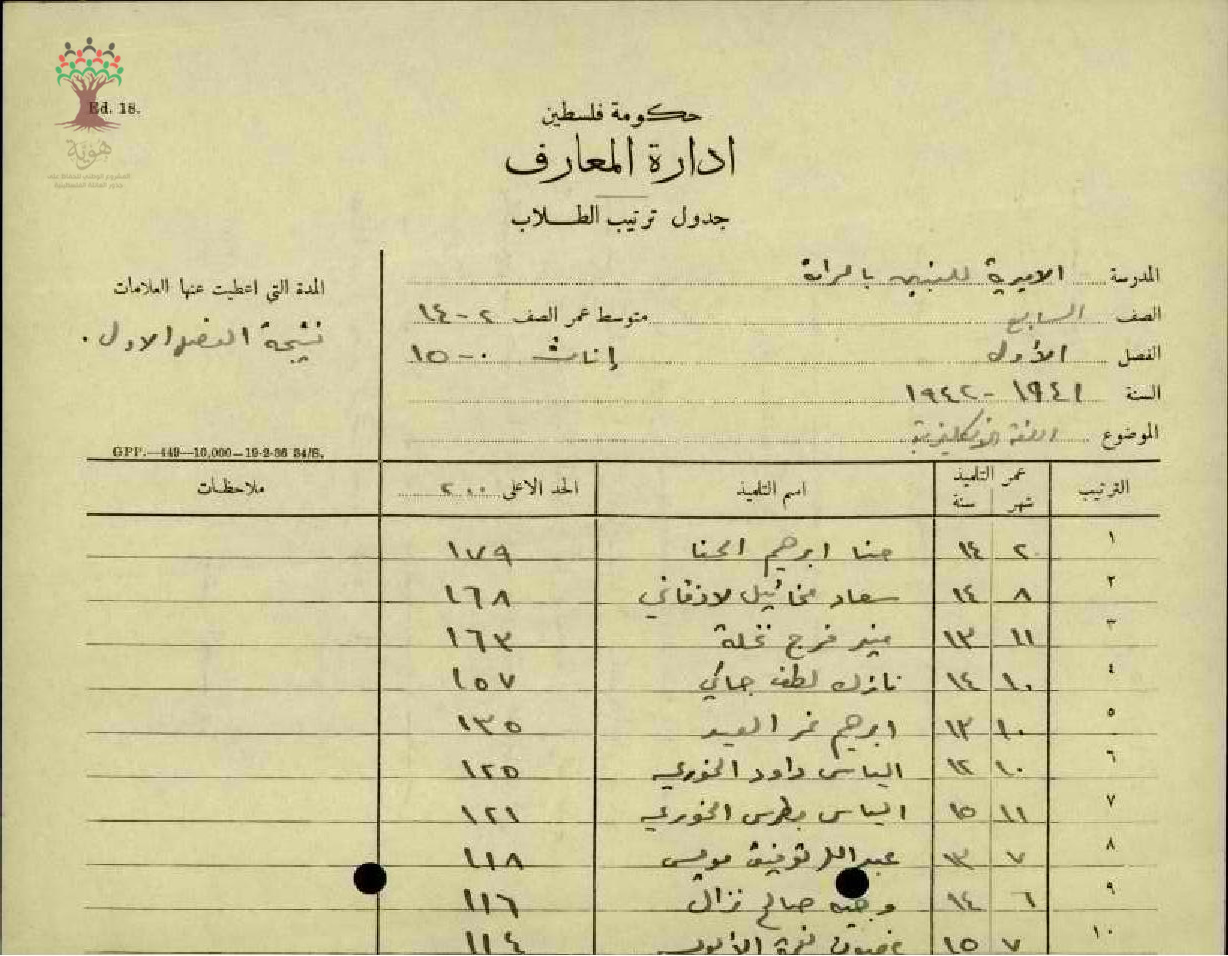 Ed. 18.
هوية
المشروع الوطني للحفاظ على
جذور العائلة الفلسطينية
حكومة فلسطين
ادارة المعارف
جدول ترتيب الطلاب
المدرسة الاميرية للبنين بالرامة
الصف السابع متوسط عمر الصف ٢ - ١٤
الفصل الأول إناث ٠ - ١٥
السنة ١٩٤١ - ١٩٤٢
الموضوع اللغة الإنكليزية
المدة التي اعطيت عنها العلامات
نتيجة الفصل الاول.
GPP.—449—10,000—19-2-36 34/S.
الترتيب عمر التلميذ شهر سنة اسم التلميذ الحد الاعلى ٢٠٠ ملاحظات
١ ٢ ١٤ حنا ابرهيم الحنا ١٧٩
٢ ٨ ١٤ سعاد مخائيل لاذقاني ١٦٨
٣ ١١ ١٣ منير فرج نخلة ١٦٣
٤ ١٠ ١٤ نازك لطف جاكي ١٥٧
٥ ١٠ ١٣ ابرهيم نمر العيد ١٣٥
٦ ١٠ ١٢ الياس داود الخوري ١٢٥
٧ ١١ ١٥ الياس بطرس الخوري ١٢١
٨ ٧ ١٣ عبدالله توفيق مويس ١١٨
٩ ٦ ١٤ وجيه صالح نزال ١١٦
١٠ ٧ ١٥ نمرة ١١٤